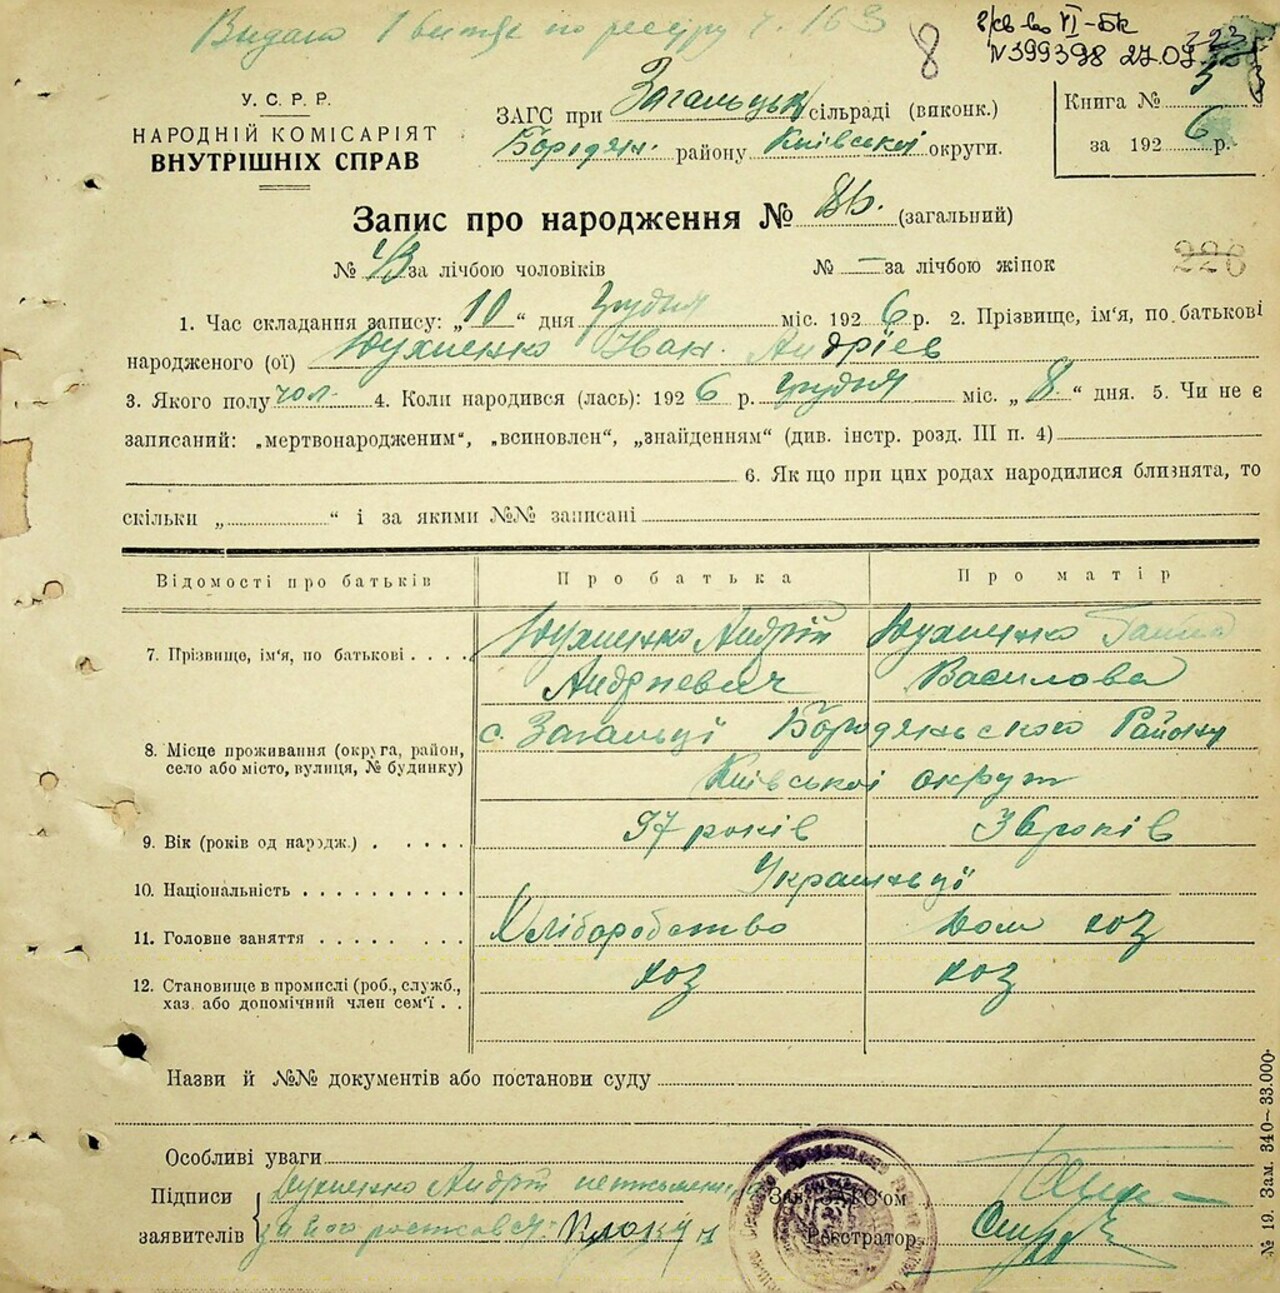 Видано 1 витяг по реєстру ч. 163
8
І/св-во VI-БК
№399398 27.07
У. С. Р. Р.
НАРОДНІЙ КОМІСАРІЯТ
ВНУТРІШНІХ СПРАВ
ЗАГС при Загальцьк сільраді (виконк.)
Бородян. району Київської округи.
Книга № 5
за 1926 р.
Запис про народження № 86. (загальний)
№ 43 за лічбою чоловіків № — за лічбою жінок
226
1. Час складання запису: „10“ дня Грудня міс. 1926 р. 2. Прізвище, ім'я, по батькові
народженого (ої) Юхименко Іван Андрієв
3. Якого полу чол. 4. Коли народився (лась): 1926 р. Грудня міс. „8.“ дня. 5. Чи не є
записаний: „мертвонародженим“, „всиновлен“, „знайденням“ (див. інстр. розд. III п. 4)
6. Як що при цих родах народилися близнята, то
скільки „ “ і за якими №№ записані
Відомості про батьків Про батька Про матір
7. Прізвище, ім'я, по батькові . . . . Юхименко Андрій Юхименко Ганна
Андрієвич Василова
8. Місце проживання (округа, район, село або місто, вулиця, № будинку) с. Загальці Бородянського Району
Київської округи
9. Вік (років од народж.) . . . . . 37 років 36 років
10. Національність . . . . . . . . . . Українці
11. Головне заняття . . . . . . . . . Хліборобство Дом хоз
12. Становище в промислі (роб., служб., хаз. або допомічний член сем'ї . . хоз хоз
Назви й №№ документів або постанови суду
Особливі уваги
Підписи Юхименко Андрій неписьменн Зав. ЗАГС'ом
заявителів за його росписався: Реєстратор
№ 19. Зам. 340—33.000.